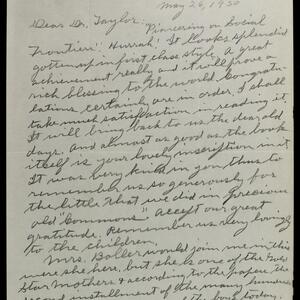 May 26, 1930
Dear Dr. Taylor:
"Pioneering on Social
Frontiers". Hurrah! It looks splendid
gotten up in first class style. A great
achievement really and it will prove a
rich blessing to the world. Congratu-
lations, certainly are in order. I shall
take much satisfaction in reading it.
It will bring back to us the dear old
days. And almost as good as the book
itself is your lovely inscription in it.
It was very kind in you thus to
remember us so generously for
the little that we did in precious
old "Commons". Accept our great
gratitude. Remember us very lovingly
to the children.
Mrs. Boller would join me in this
were she here, but she is one of the Gold
Star Mothers & according to the papers the
second installment of the many hundreds
the boat today.